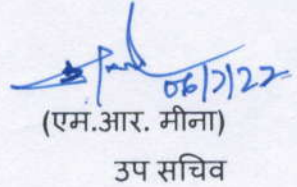 06/7/22
(एम.आर. मीना)
उप सचिव